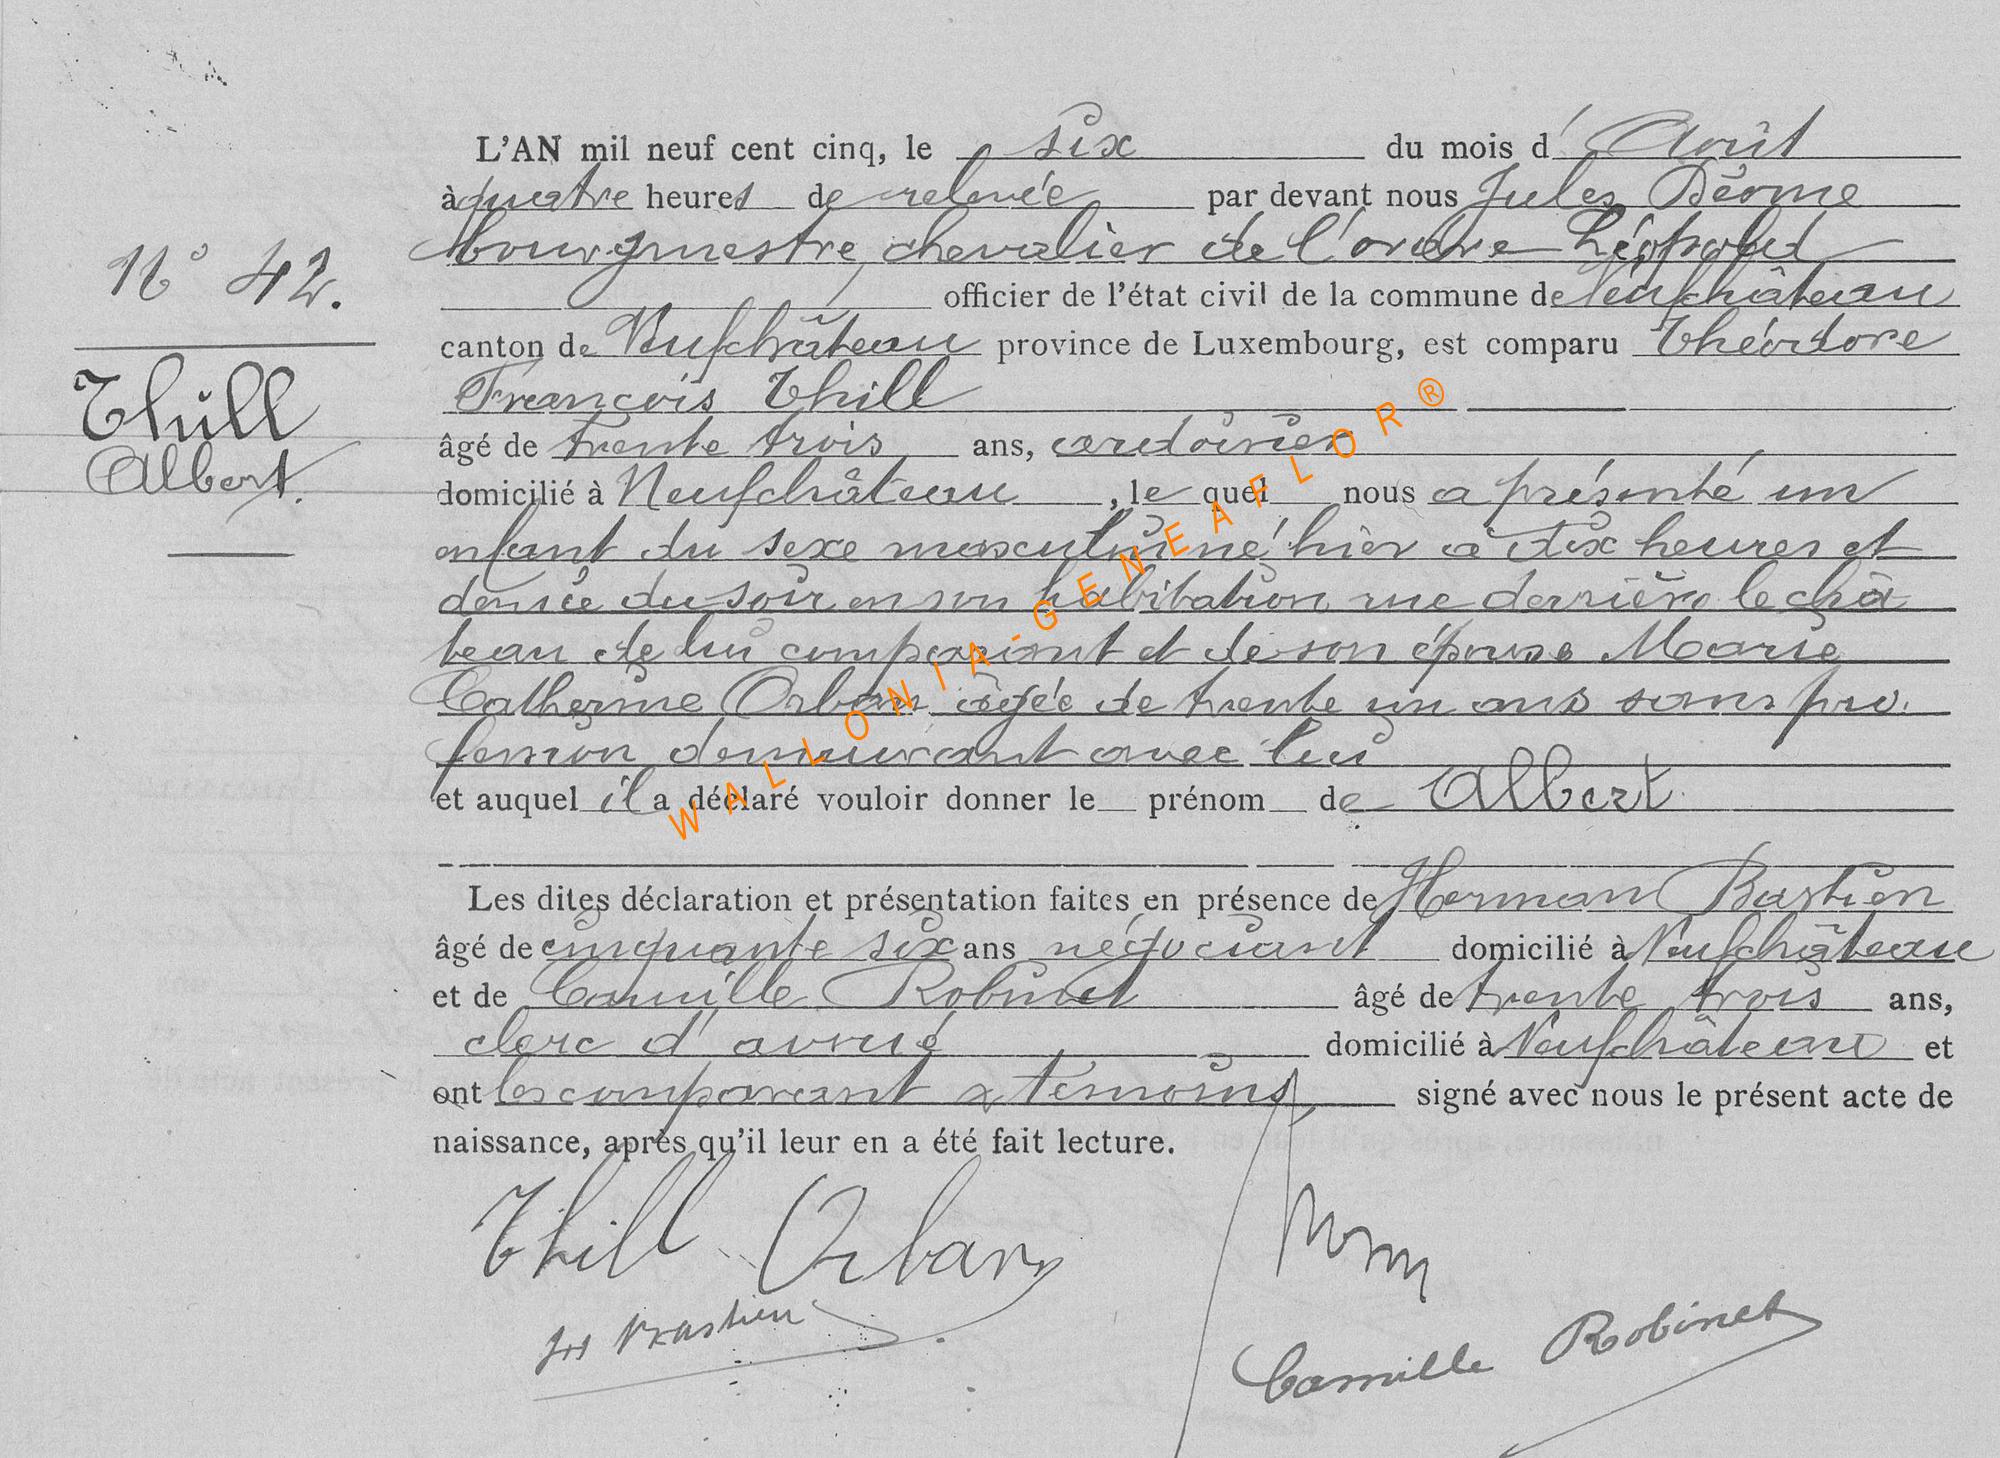 N° 42.
Thill
Albert.
L'AN mil neuf cent cinq, le six du mois d'Août
à quatre heures de relevée par devant nous Jules Déome
bourgmestre, chevalier de l'ordre Léopold
officier de l'état civil de la commune de Neufchâteau
canton de Neufchâteau province de Luxembourg, est comparu Théodore
François Thill
âgé de trente trois ans, ardoisier
domicilié à Neufchâteau, le quel nous a présenté un
enfant du sexe masculin né hier à dix heures et
demie du soir en son habitation rue derrière le châ
teau de lui comparant et de son épouse Marie
Catherine Orban âgée de trente un ans sans pro.
fession demeurant avec lui
et auquel il a déclaré vouloir donner le prénom de Albert.
Les dites déclaration et présentation faites en présence de Herman Bastien
âgé de cinquante six ans négociant domicilié à Neufchâteau
et de Camille Robinet âgé de trente trois ans,
clerc d'avoué domicilié à Neufchâteau et
ont les comparant & témoins signé avec nous le présent acte de
naissance, après qu'il leur en a été fait lecture.
Thill Orban
Bastien
Camille Robinet
WALLONIA-GENEAFLOR®